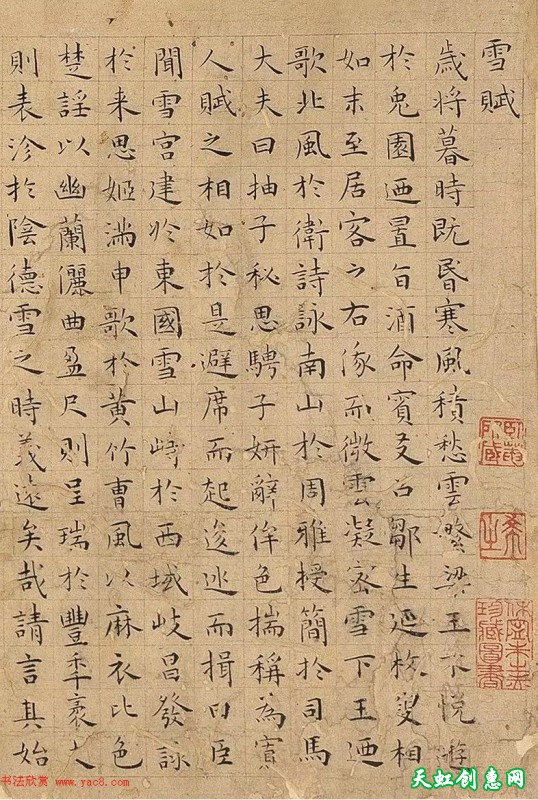 雪賦
歲將暮時既昬寒風積愁雲繁梁王不悅遊
於兔園迺置旨酒命賓友召鄒生延枚叟相
如末至居客之右俄而微雲凝密雪下王迺
歌北風於衛詩詠南山於周雅授簡於司馬
大夫曰抽子秘思騁子妍辭侔色揣稱為寡
人賦之相如於是避席而起逡巡而揖曰臣
聞雪宮建於東國雪山峙於西域岐昌發詠
於来思姬滿申歌於黃竹曹風以麻衣比色
楚謡以幽蘭儷曲盈尺則呈瑞於豐年袤丈
則表沴於陰德雪之時義遠矣哉請言其始
书法欣赏 www.yac8.com
天虹创惠网